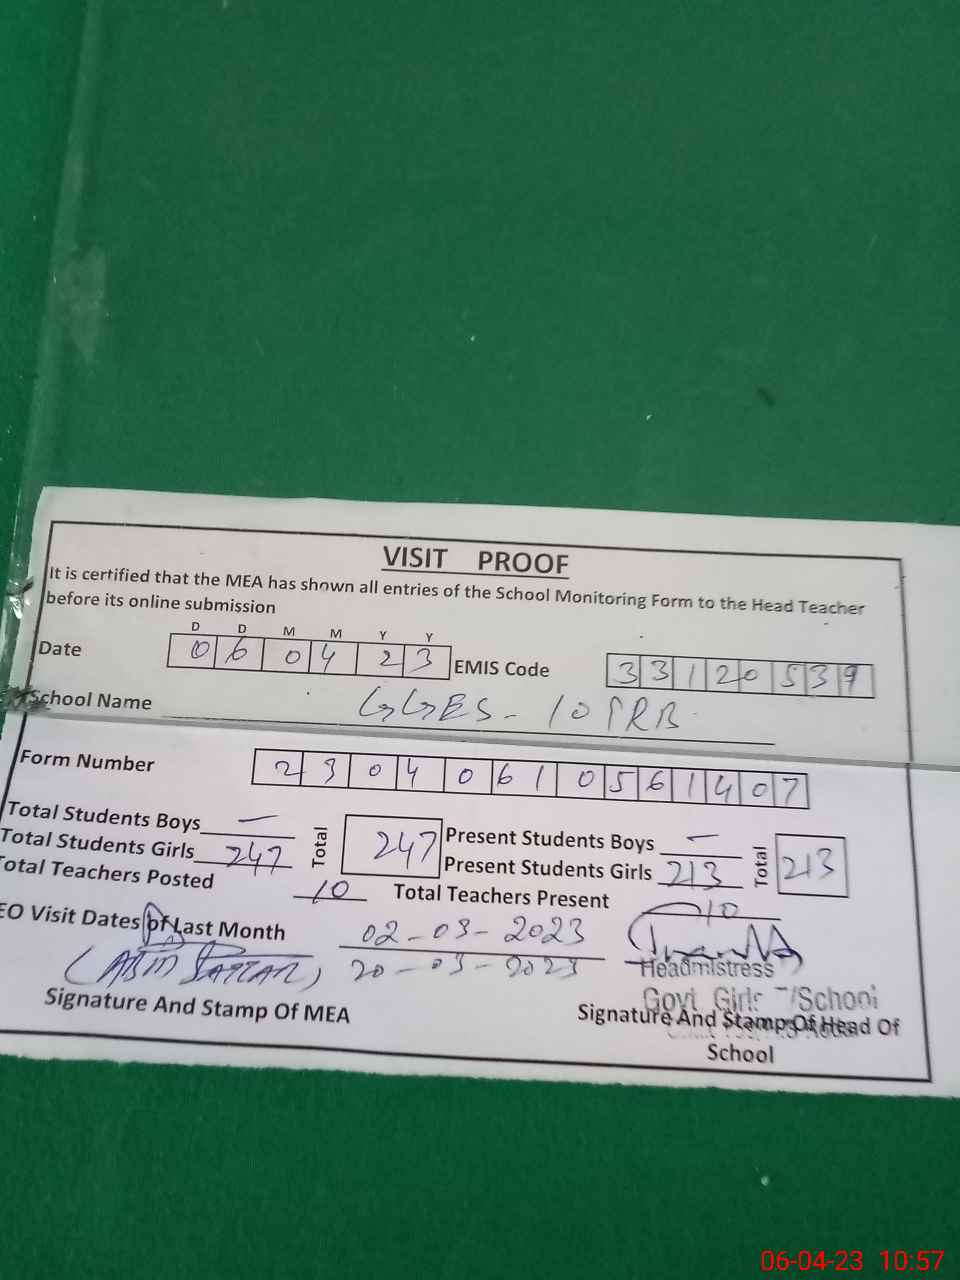 VISIT PROOF
It is certified that the MEA has shown all entries of the School Monitoring Form to the Head Teacher
before its online submission
D D M M Y Y
Date 0 6 0 4 2 3 EMIS Code 3 3 1 2 0 5 3 9
School Name GGES - 10
Form Number 2 3 0 4 0 6 1 0 5 6 1 4 0 7
Total Students Boys — Total 247 Present Students Boys — Total 213
Total Students Girls 247 Present Students Girls 213
Total Teachers Posted 10 Total Teachers Present 10
EO Visit Dates of Last Month 02-03-2023
20-03-2023
Headmistress
Govt Girls School
Signature And Stamp Of MEA
Signature And Stamp Of Head Of
School
06-04-23 10:57